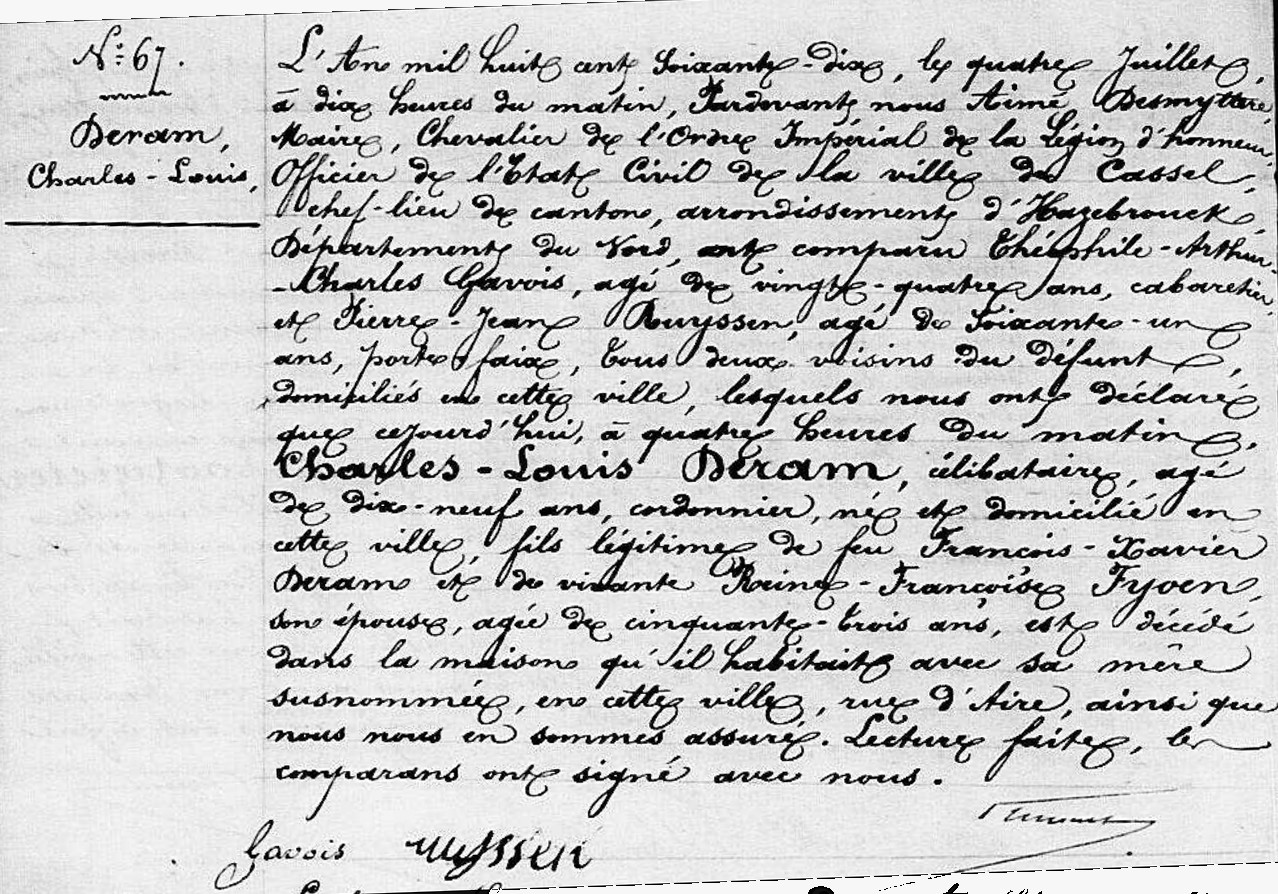 N.° 67.
Deram,
Charles-Louis,
L'An mil huit cent Soixante-dix, le quatre Juillet,
à dix heures du matin, Pardevant nous Aimé Desmyttere,
Maire, Chevalier de l'Ordre Impérial de la Légion d'honneur,
Officier de l'Etat Civil de la ville de Cassel,
chef-lieu de canton, arrondissement d'Hazebrouck,
Département du Nord, ont comparu Théophile-Arthur-
-Charles Gavois, agé de vingt-quatre ans, cabaretier,
et Pierre-Jean Ruyssen, agé de Soixante-un
ans, porte-faix, tous deux voisins du défunt,
domiciliés en cette ville, lesquels nous ont déclaré
que cejourd'hui, à quatre heures du matin,
Charles-Louis Deram, célibataire, agé
de dix-neuf ans, cordonnier, né et domicilié en
cette ville, fils légitime de feu François-Xavier
Deram et de vivante Reine-Françoise Fyoen,
son épouse, agée de cinquante-trois ans, est décédé
dans la maison qu'il habitait avec sa mère
susnommée, en cette ville, rue d'Aire, ainsi que
nous nous en sommes assuré. Lecture faite, les
comparans ont signé avec nous.
Gavois ruyssen